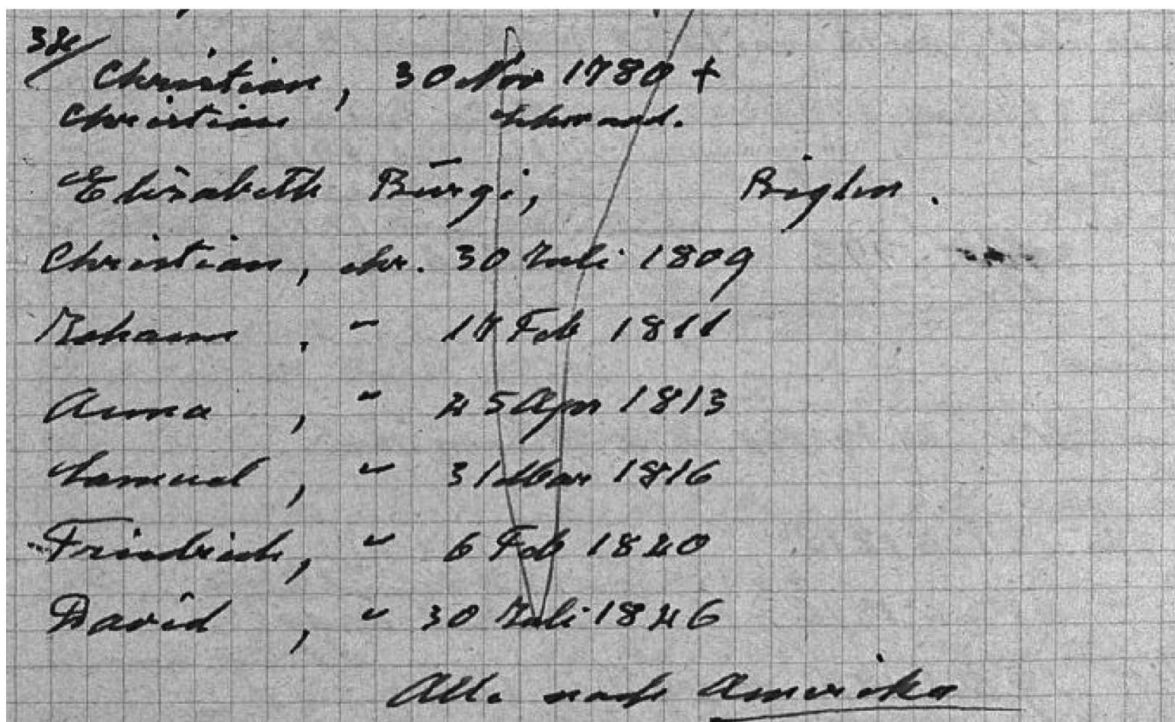 32/
Christian, 30 Nov 1780 +
Christian Schwand.
Elisabeth Bürgi, Biglen.
Christian, chr. 30 Juli 1809
Johann, " 17 Feb 1811
Anna, " 25 Apr 1813
Samuel, " 31 Mar 1816
Friedrich, " 6 Feb 1820
David, " 30 Juli 1826
Alle nach Amerika